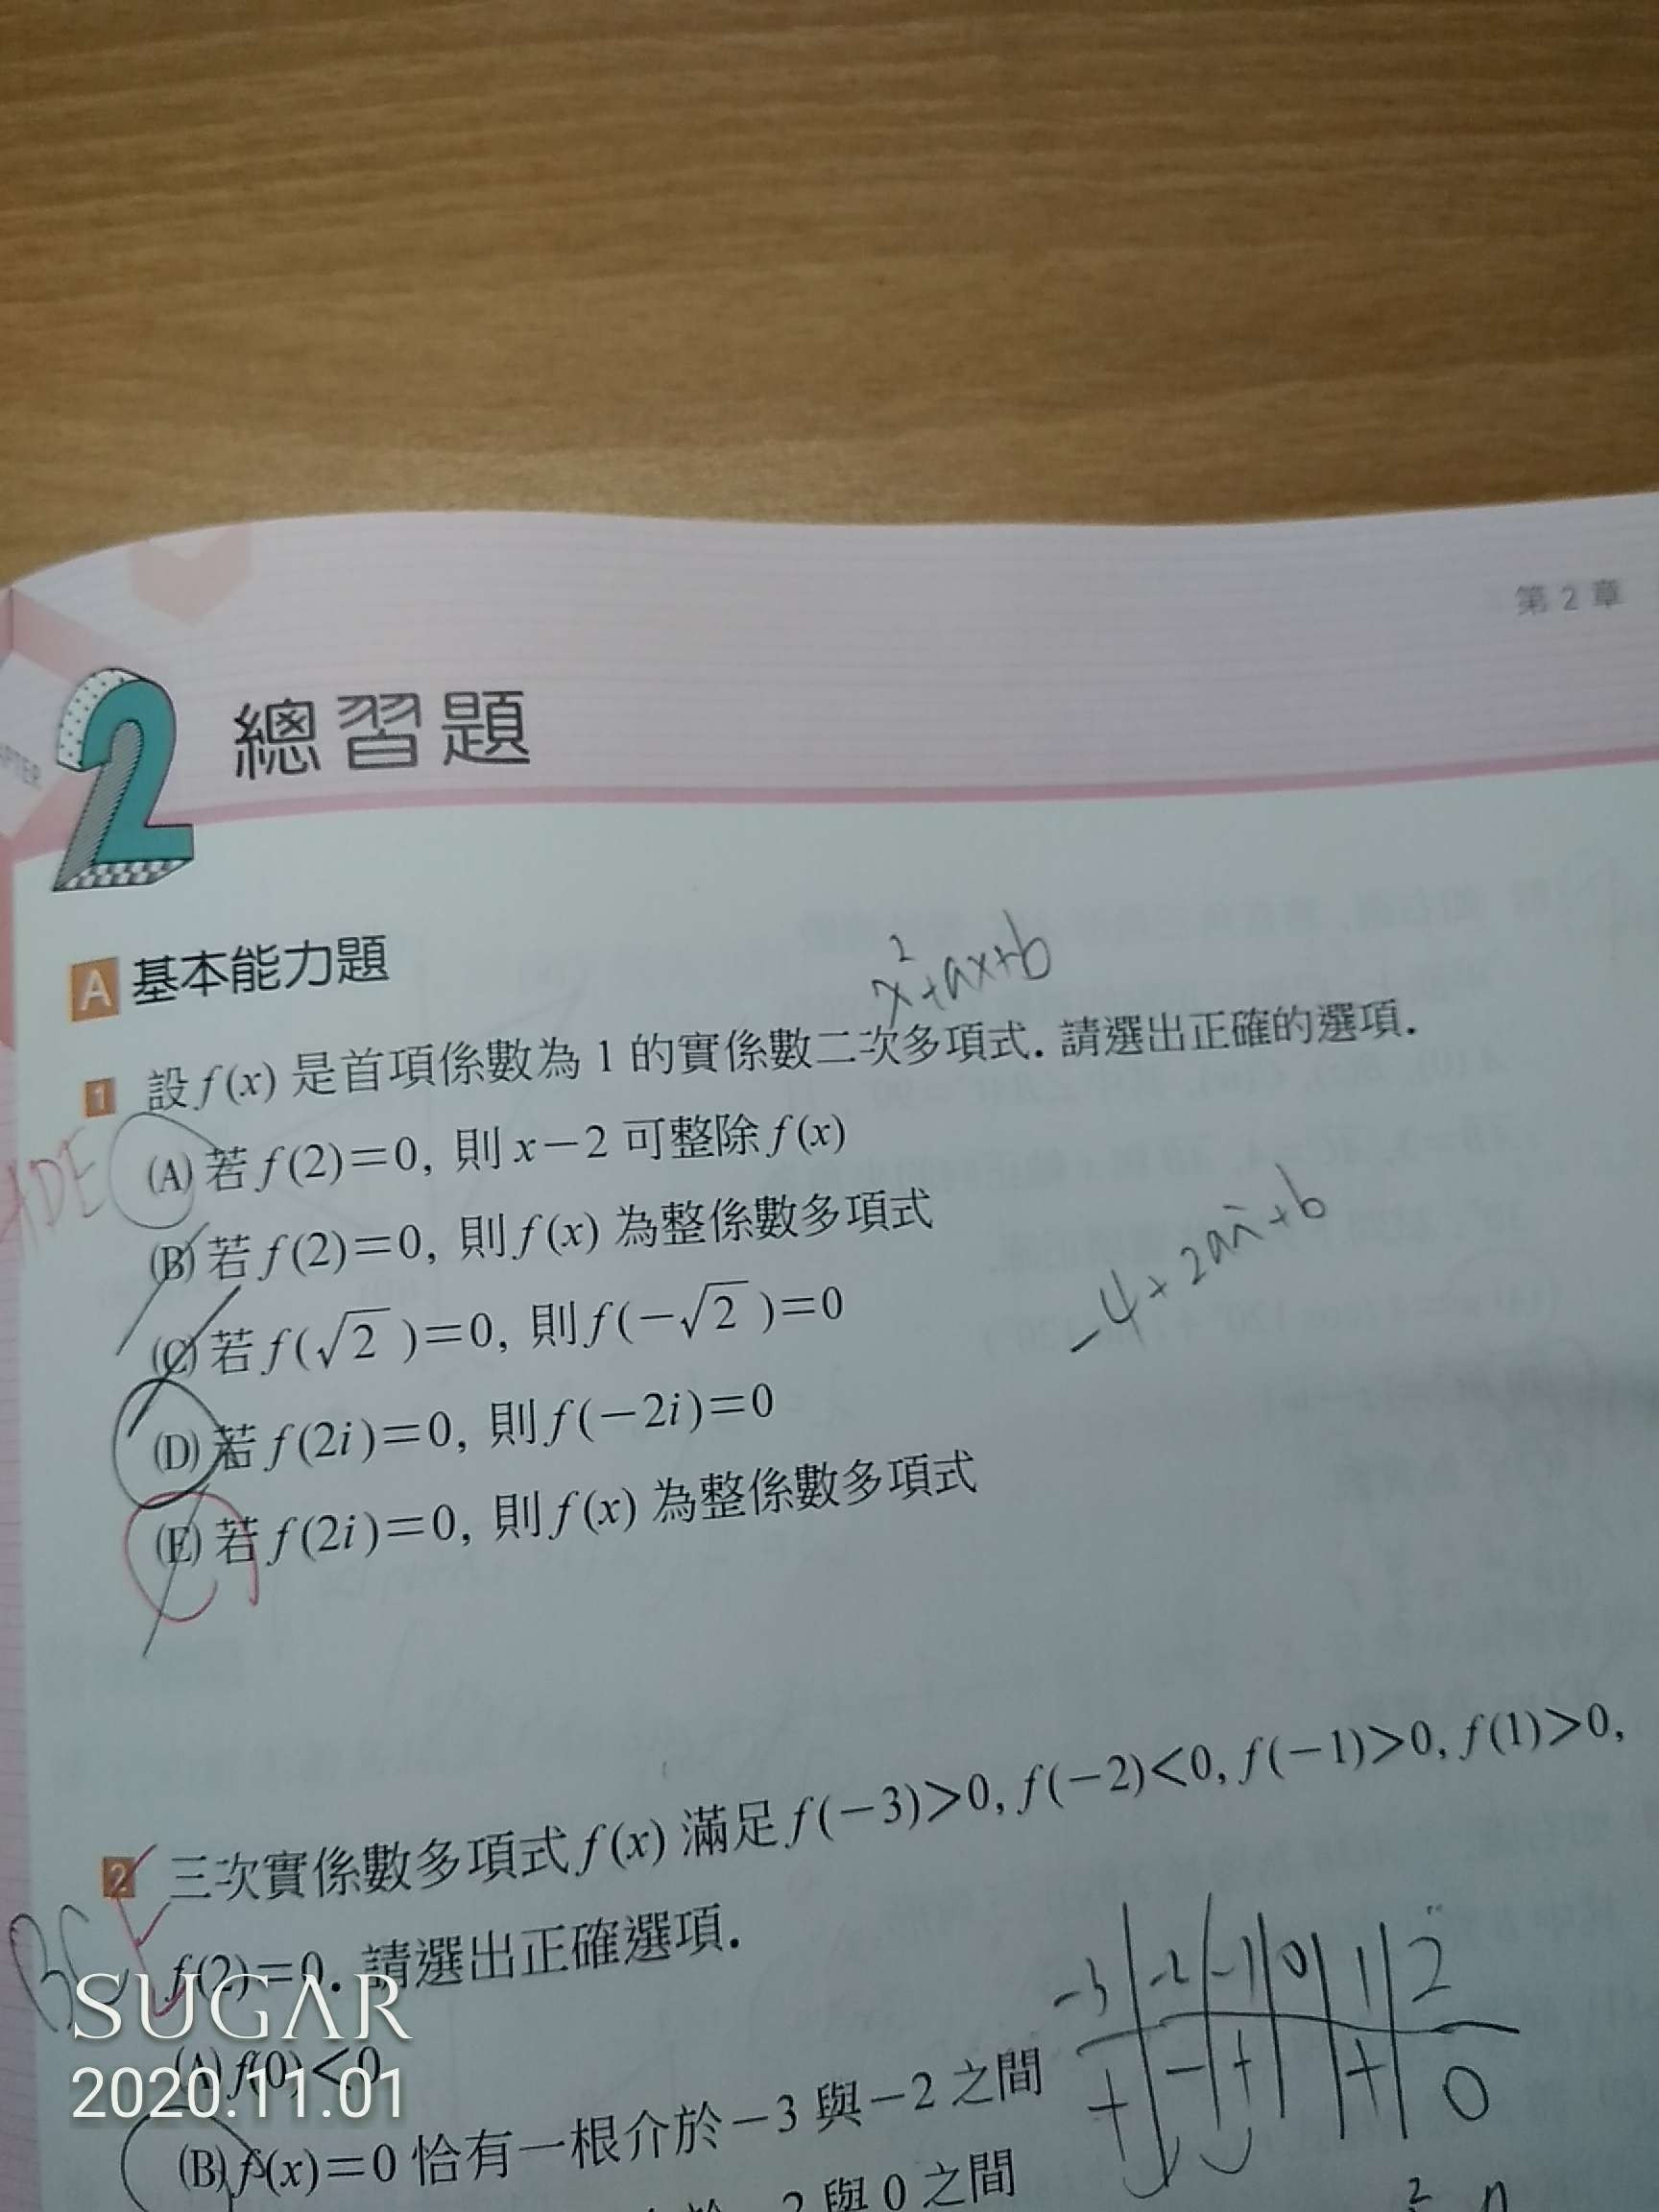 第 2 章
APTER
2 總習題
x²+ax+b
A 基本能力題
1 設 f(x) 是首項係數為 1 的實係數二次多項式. 請選出正確的選項.
ADE
(A) 若 f(2)=0, 則 x-2 可整除 f(x)
(B) 若 f(2)=0, 則 f(x) 為整係數多項式
-4+2ai+b
(C) 若 f(√2)=0, 則 f(-√2)=0
(D) 若 f(2i)=0, 則 f(-2i)=0
(E) 若 f(2i)=0, 則 f(x) 為整係數多項式
2 三次實係數多項式 f(x) 滿足 f(-3)>0, f(-2)<0, f(-1)>0, f(1)>0,
BC
f(2)=0. 請選出正確選項.
-3 -2 -1 0 1 2
+ - + + 0
SUGAR
(A) f(0)<0
2020.11.01
(B) f(x)=0 恰有一根介於 -3 與 -2 之間
2 與 0 之間